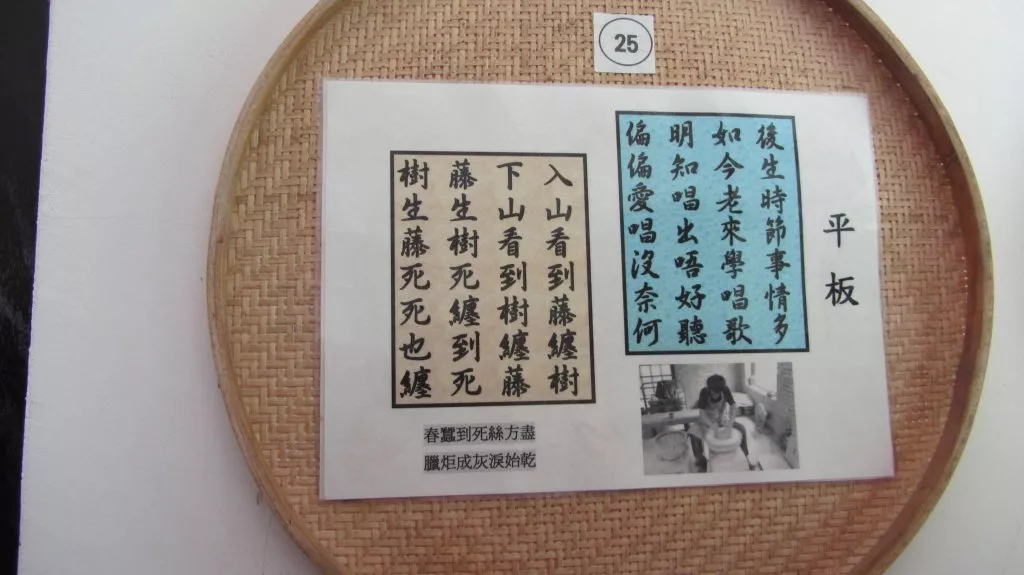 25
平板
後生時節事情多
如今老來學唱歌
明知唱出唔好聽
偏偏愛唱沒奈何
入山看到藤纏樹
下山看到樹纏藤
藤生樹死纏到死
樹生藤死死也纏
春蠶到死絲方盡
臘炬成灰淚始乾